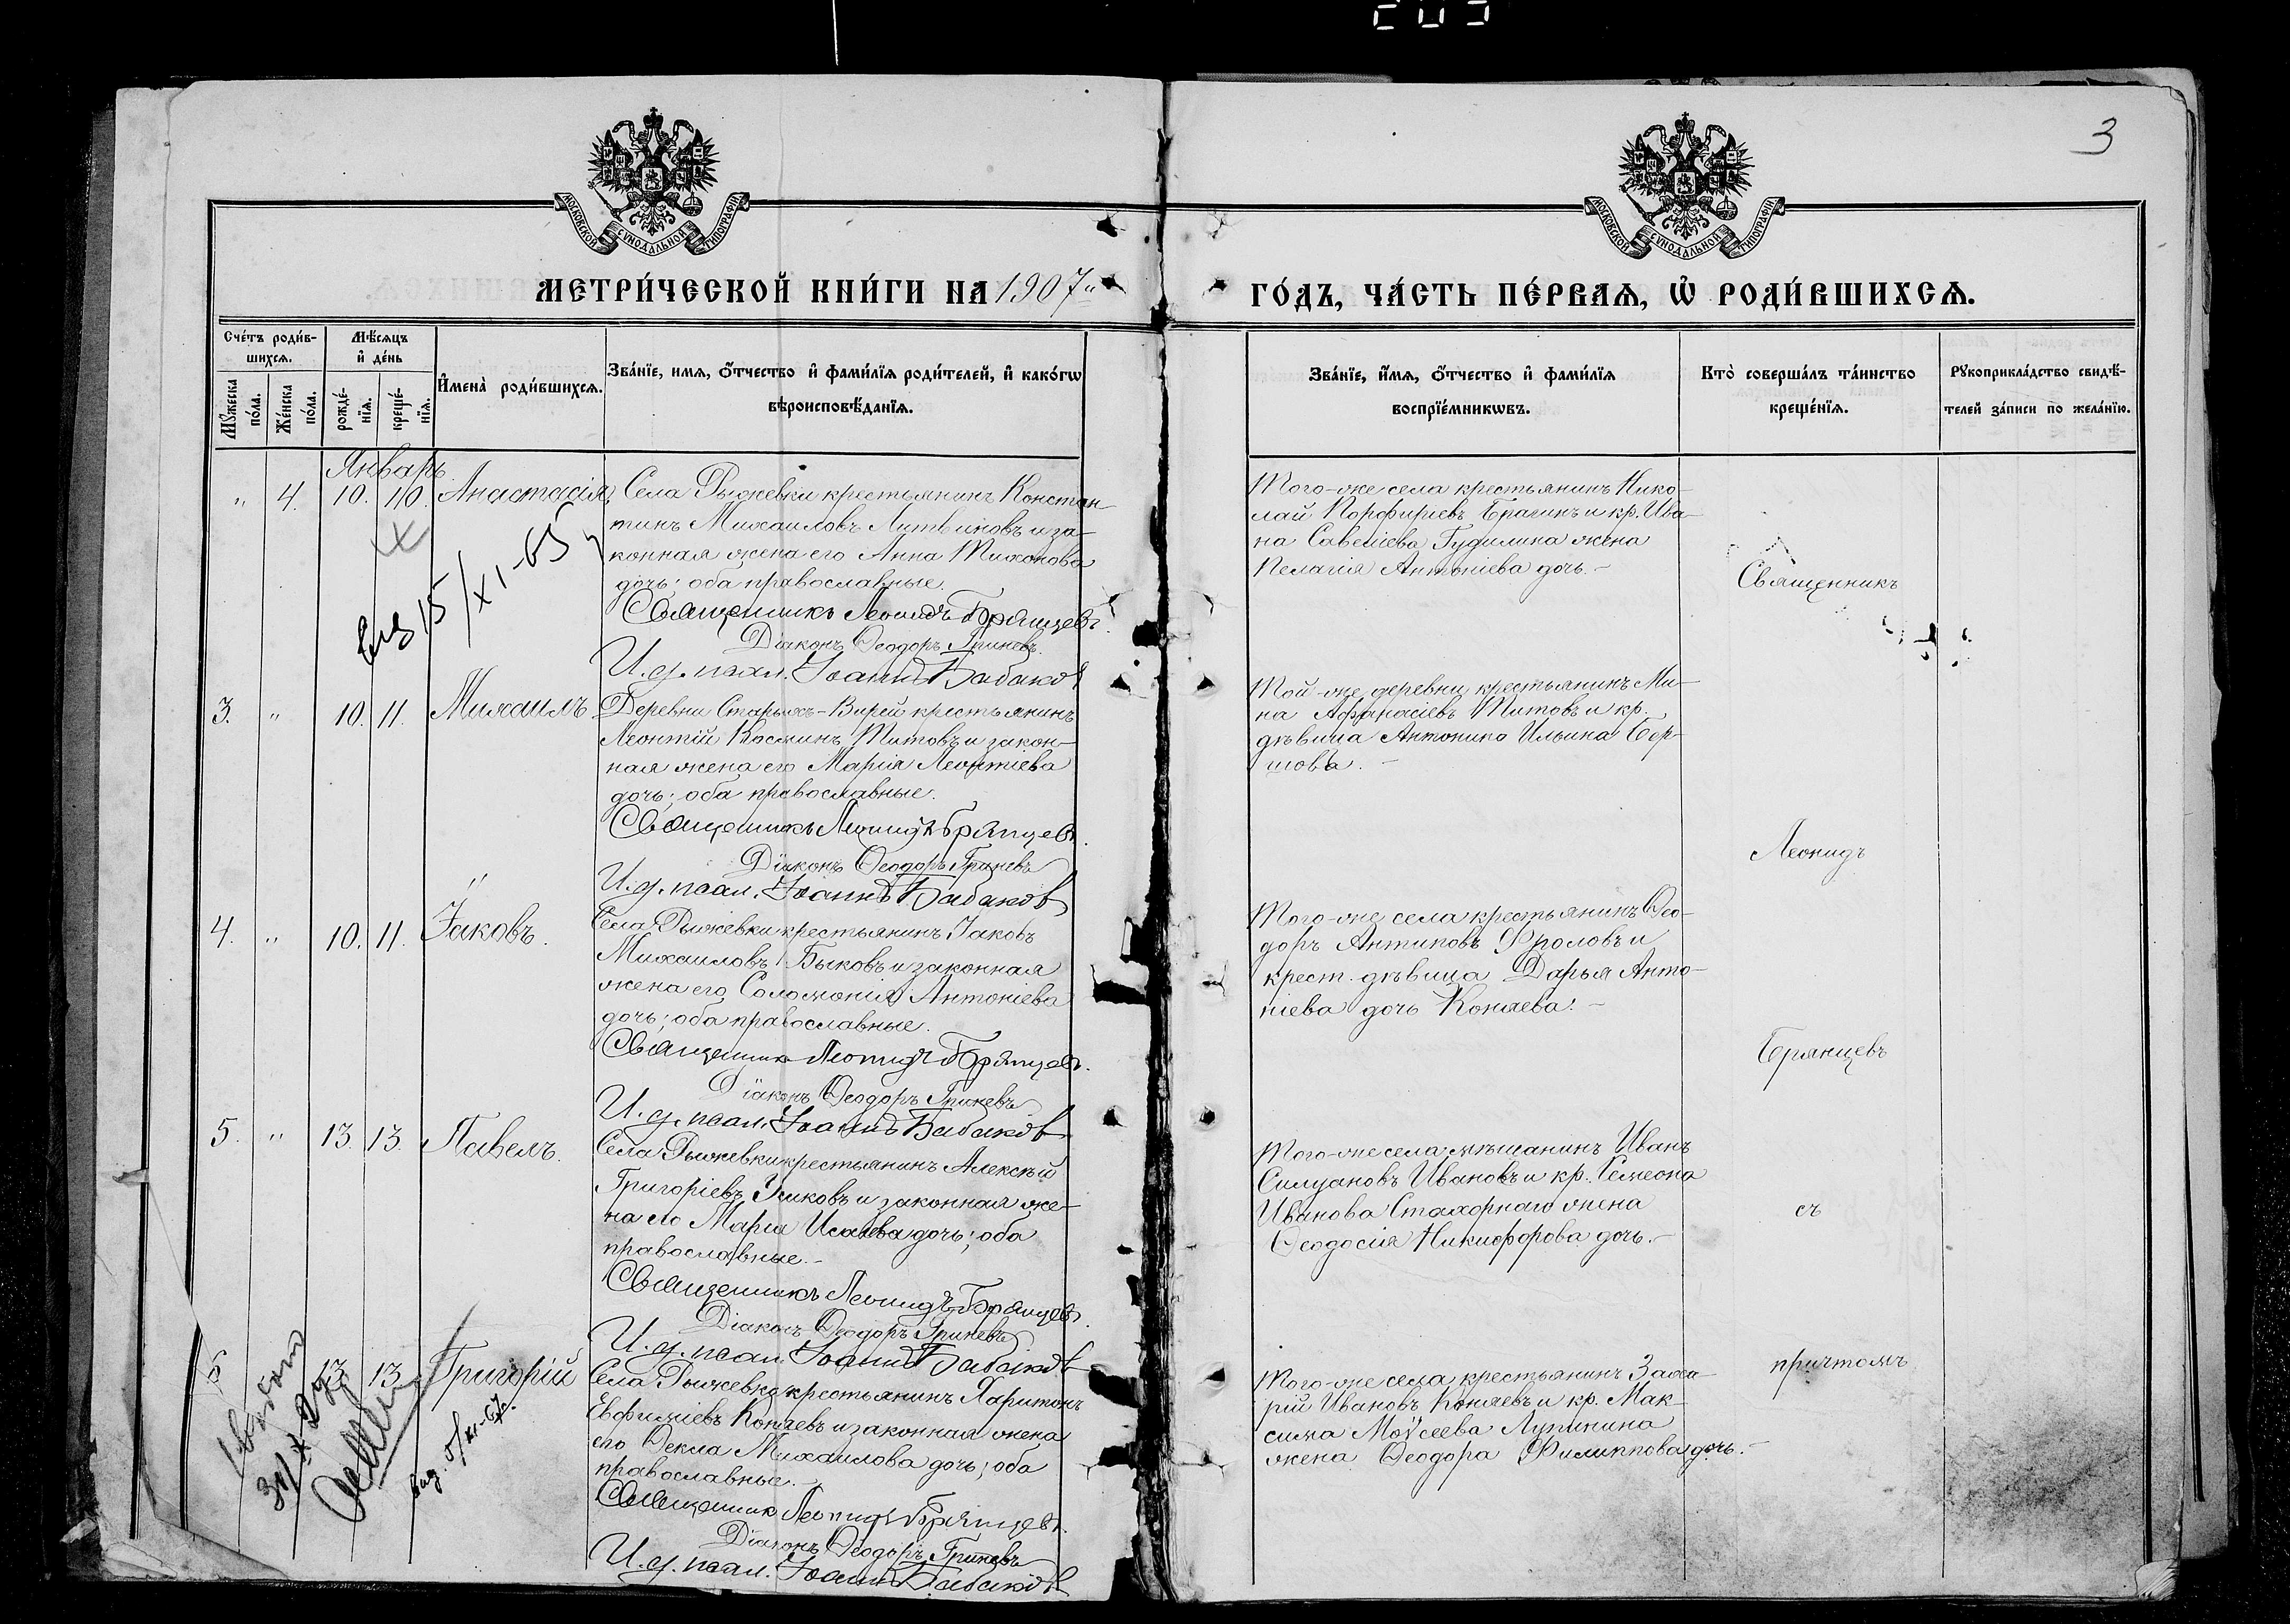 3
МОСКОВСКОЙ СУНОДАЛЬНОЙ ТИПОГРАФІИ
МОСКОВСКОЙ СУНОДАЛЬНОЙ ТИПОГРАФІИ
МЕТРИ́ЧЕСКОЙ КНИ́ГИ НА 1907"
ГО́ДЪ, ЧА́СТЬ ПЕ́РВАѦ, Ѡ҆ РОДИ́ВШИХСѦ.
Сче́тъ роди́в-
шихсѧ.
Мꙋ́жеска
по́ла.
Же́нска
по́ла.
Мѣ́сѧцъ
и҆ де́нь
рожде́-
нїѧ.
креще́-
нїѧ.
И҆мена̀ роди́вшихсѧ.
Зва́нїе, имѧ, ѻ҆́тчество и҆ фами́лїѧ роди́телей, и҆ како́гѡ
вѣроисповѣ́данїѧ.
Зва́нїе, и҆́мѧ, ѻ҆́тчество и҆ фами́лїѧ
воспрїе́мникѡвъ.
Кто̀ соверша́лъ та́инство
креще́нїѧ.
Рꙋкоприкла́дство свидѣ́-
телей за́писи по жела́нїю.
Январь
" 4. 10. 10. Анастасія
Села Рыжевки крестьянинъ Констан-
тинъ Михаиловъ Литвиновъ и за-
конная жена его Анна Тихонова
дочь; оба православные.
Священникъ Леонидъ Брянцевъ.
Діаконъ Ѳеодоръ Гриневъ.
И. д. псал. Іоаннъ Бабаковъ
Того-же села крестьянинъ Нико-
лай Порфиріевъ Брагинъ и кр. Ива-
на Савеліева Гудилина жена
Пелагія Антоніева дочь.-
Священникъ
15/XI-65
3. " 10. 11. Михаилъ
Деревни Старыхъ-Вирей крестьянинъ
Леонтій Косминъ Титовъ и закон-
ная жена его Марія Леонтіева
дочь; оба православные.
Священникъ Леонидъ Брянцевъ.
Діаконъ Ѳеодоръ Гриневъ
И. д. псал. Іоаннъ Бабаковъ
Той-же деревни крестьянинъ Ми-
на Афанасіевъ Титовъ и кр.
дѣвица Антонина Ильина Бер-
шова.-
Леонидъ
4. " 10. 11. Іаковъ.
Села Рыжевки крестьянинъ Іаковъ
Михаиловъ Быковъ и законная
жена его Соломонія Антоніева
дочь; оба православные.
Священникъ Леонидъ Брянцевъ.
Діаконъ Ѳеодоръ Гриневъ
И. д. псал. Іоаннъ Бабаковъ
Того-же села крестьянинъ Ѳео-
доръ Антиповъ Фроловъ и
крест. дѣвица Дарья Анто-
ніева дочь Коняева.-
Брянцевъ
5. " 13. 13. Павелъ.
Села Рыжевки крестьянинъ Алексѣй
Григоріевъ Усиковъ и законная же-
на его Марія Исаіева дочь; оба
православные.-
Священникъ Леонидъ Брянцевъ.
Діаконъ Ѳеодоръ Гриневъ
И. д. псал. Іоаннъ Бабаковъ
Того-же села мѣщанинъ Иванъ
Силуановъ Ивановъ и кр. Семеона
Иванова Стахорнаго жена
Ѳеодосія Никифорова дочь.-
съ
6 13. 13. Григорій
Села Рыжевки крестьянинъ Харитонъ
Евфиміевъ Коняевъ и законная жена
его Ѳекла Михаилова дочь; оба
православные.-
Священникъ Леонидъ Брянцевъ.
Діаконъ Ѳеодоръ Гриневъ
И. д. псал. Іоаннъ Бабаковъ
Того-же села крестьянинъ Заха-
рій Ивановъ Коняевъ и кр. Мак-
сима Моѵсеева Лупикина
жена Ѳеодора Филиппова дочь.-
причтомъ